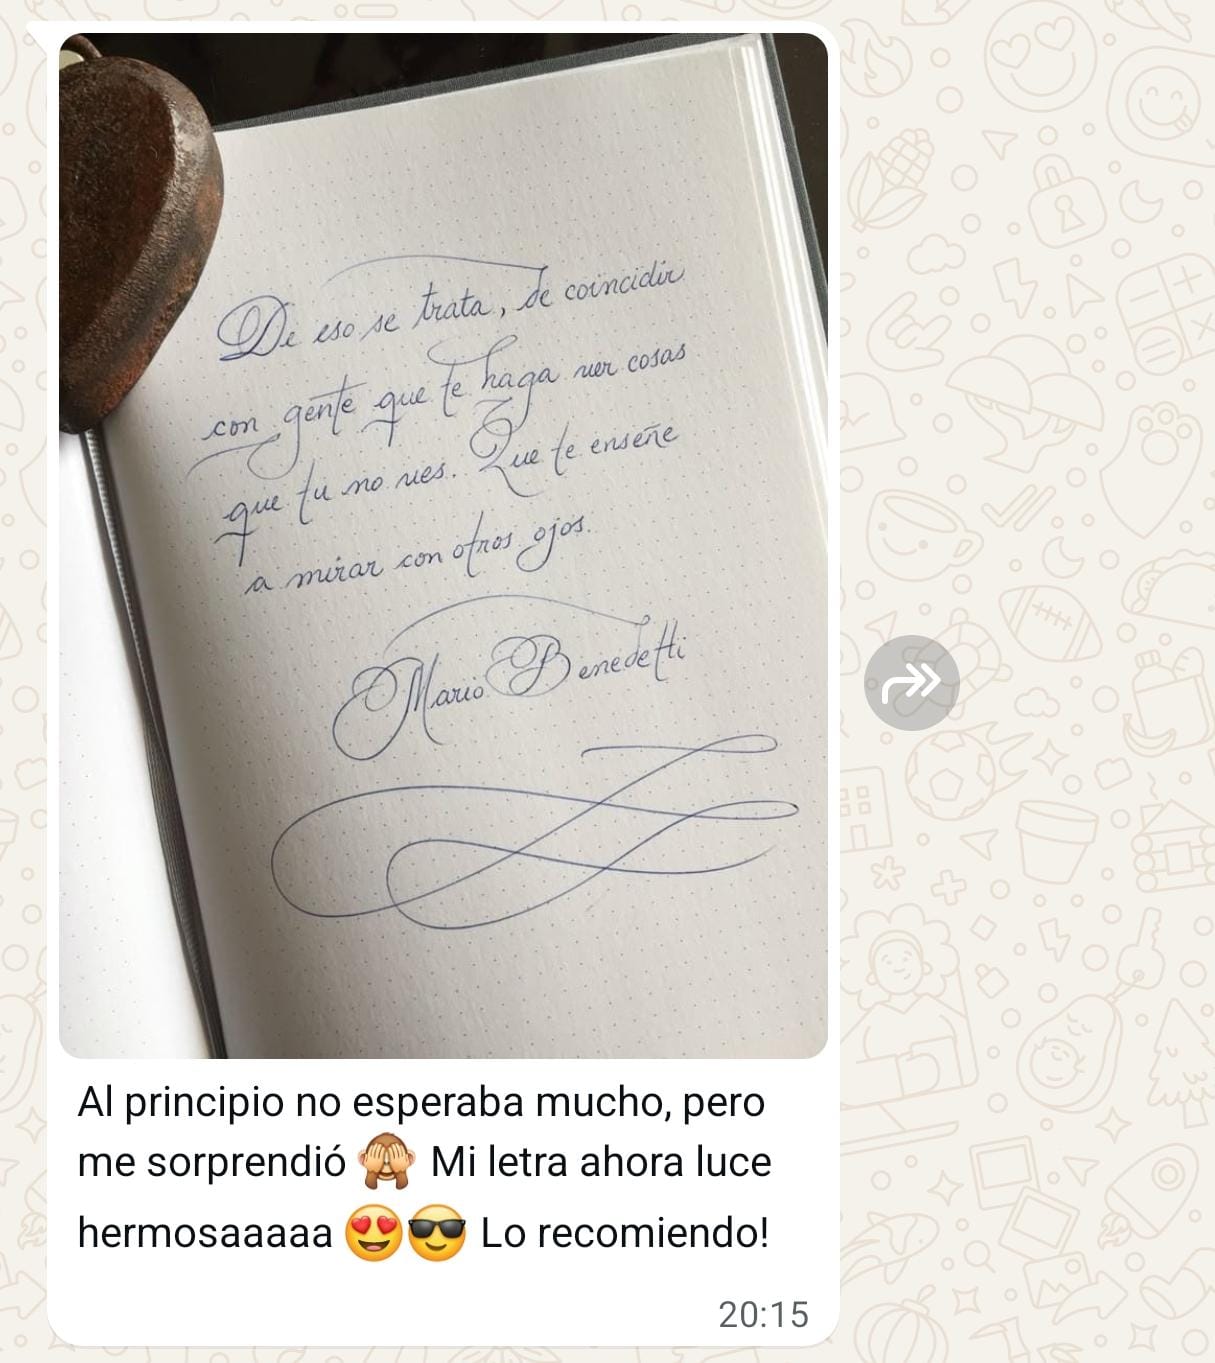 De eso se trata, de coincidir
con gente que te haga ver cosas
que tu no ves. Que te enseñe
a mirar con otros ojos.
Mario Benedetti
Al principio no esperaba mucho, pero
me sorprendió 🙈 Mi letra ahora luce
hermosaaaaa 😍😎 Lo recomiendo!
20:15